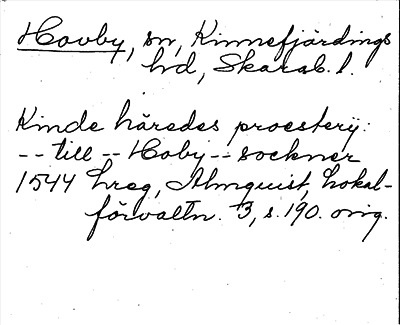 Hovby, sn, Kinnefjärdings
hd, Skarab. l.
Kinde häredes proesterij:
-- till -- Hoby -- sockner
1544 hreg, Almquist, Lokal-
förvaltn. 3, s. 190. orig.